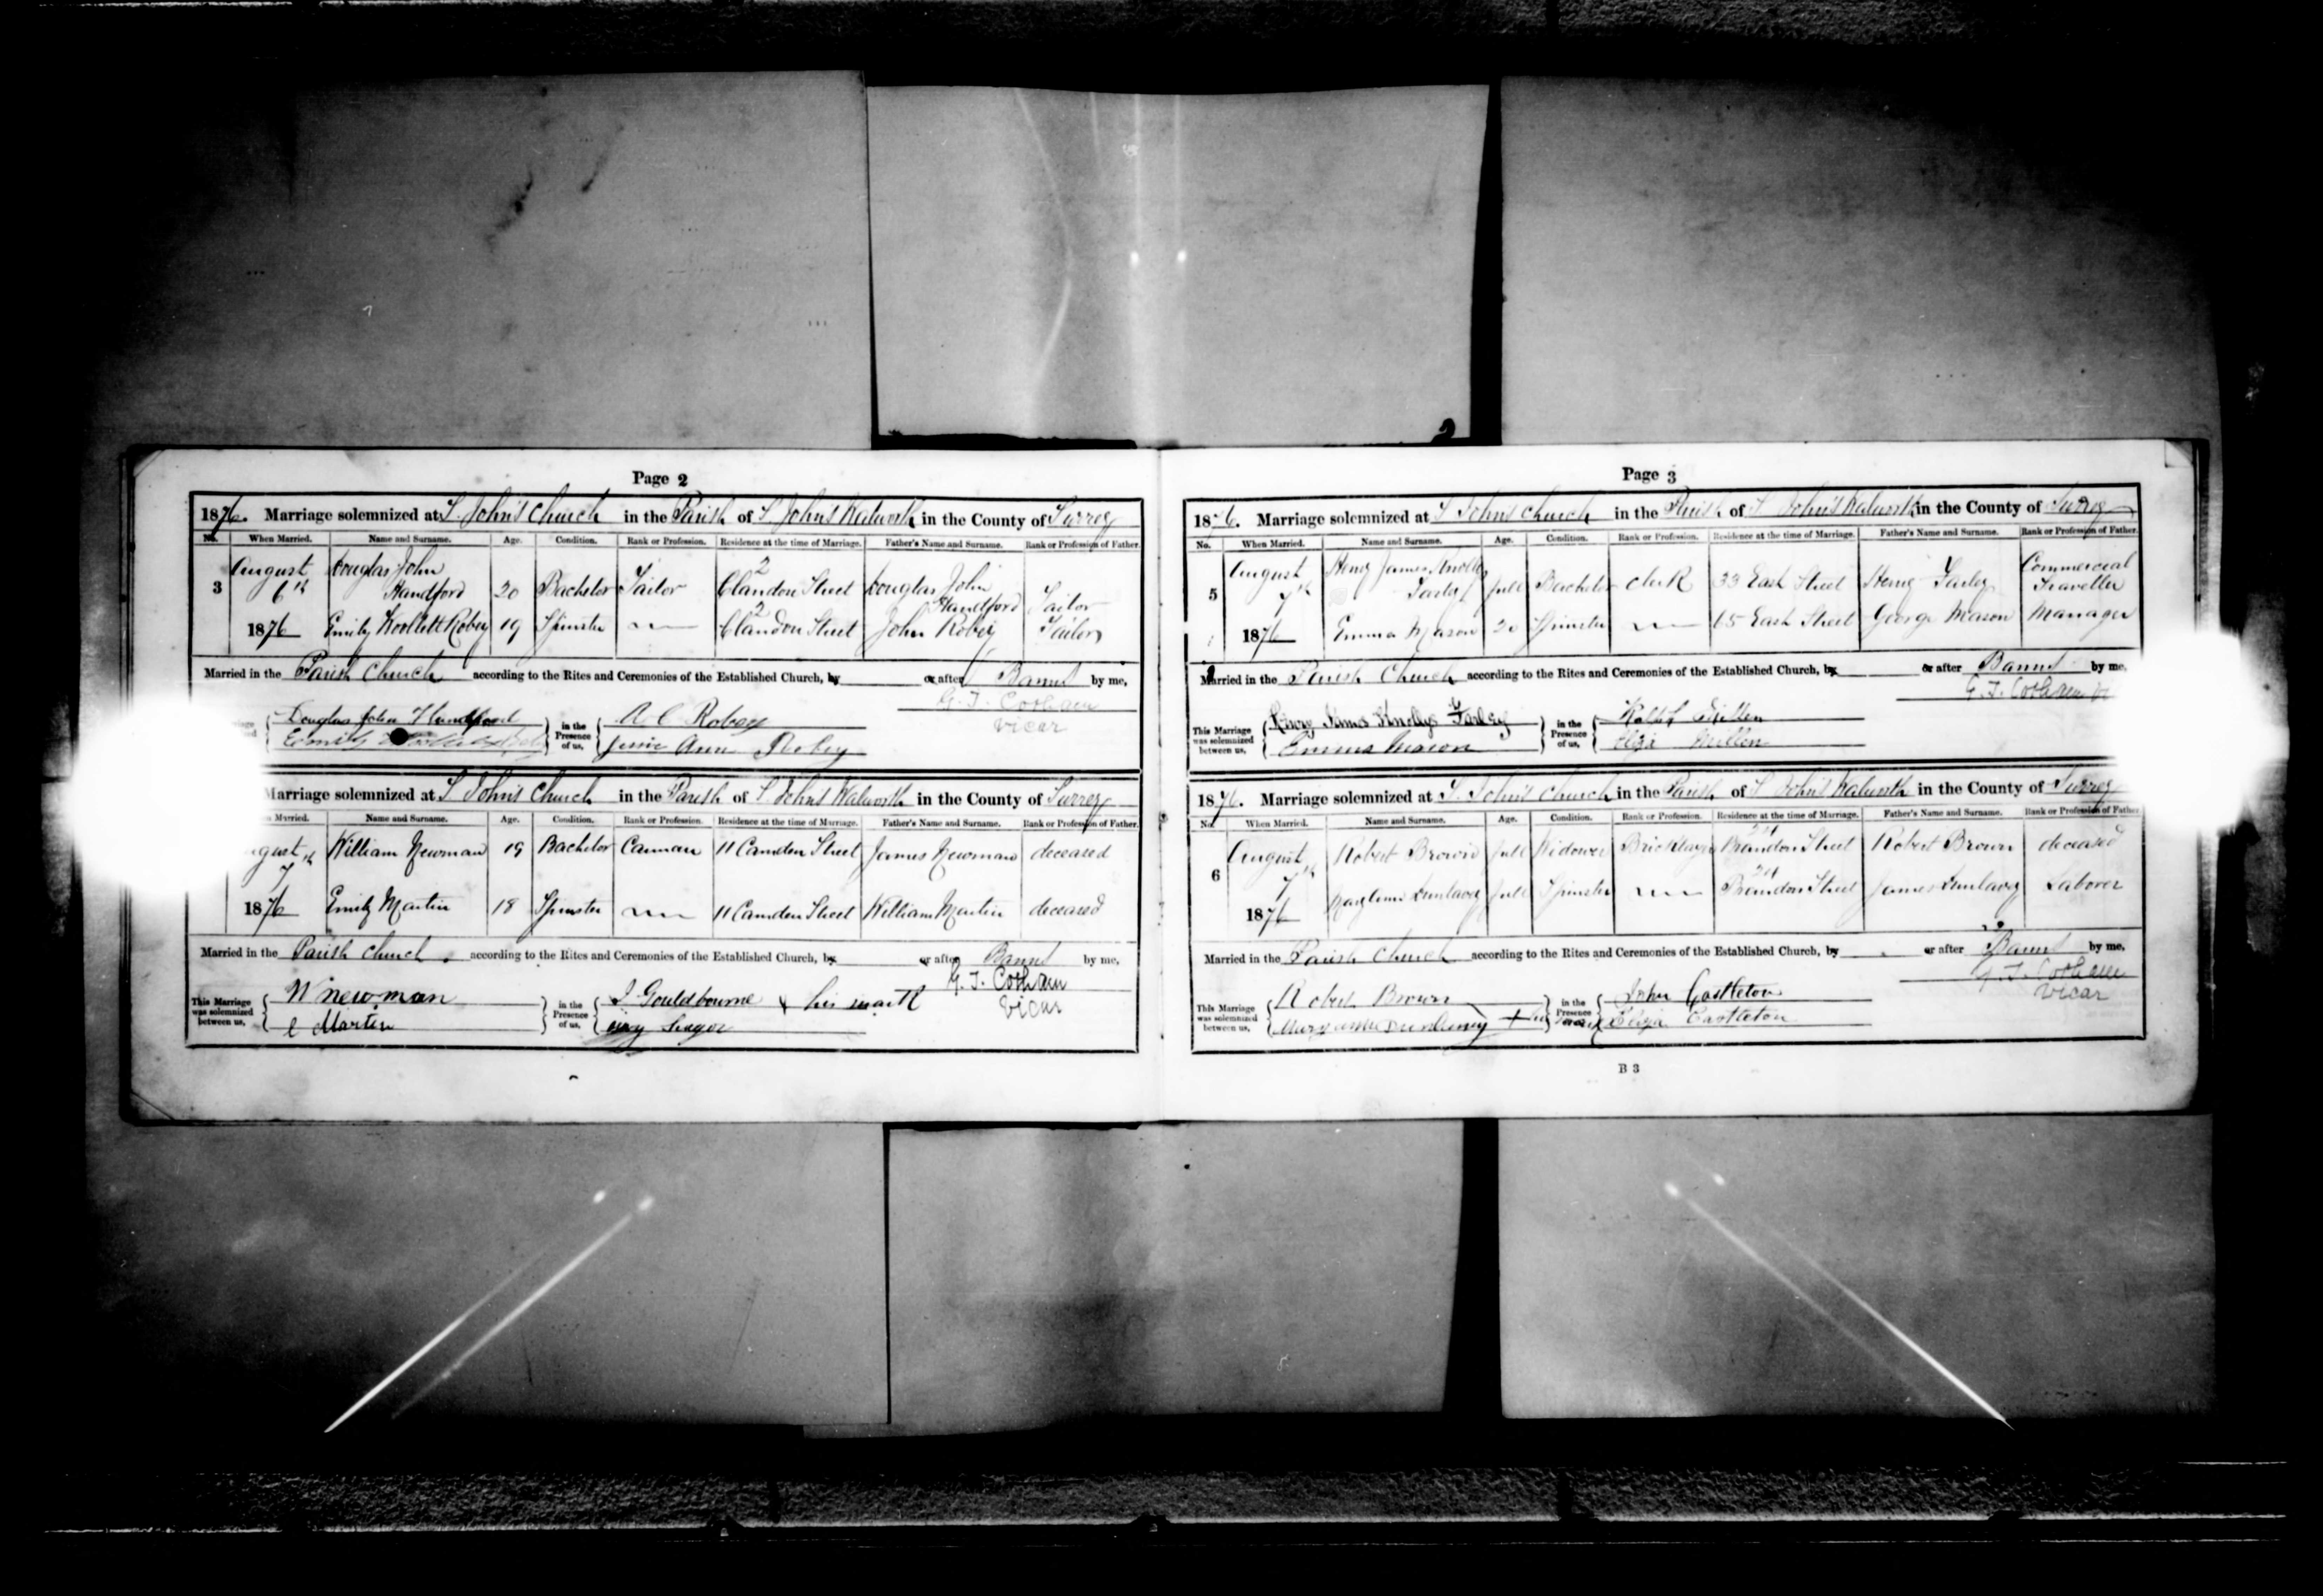 Page 2
1876. Marriage solemnized at S. John's Church in the Parish of S. John's Walworth in the County of Surrey
No. When Married. Name and Surname. Age. Condition. Rank or Profession. Residence at the time of Marriage. Father's Name and Surname. Rank or Profession of Father.
3 August 6th 1876 Douglas John Handford 20 Bachelor Tailor 2 Clandon Street Douglas John Handford Tailor
Emily Woollett Robey 19 Spinster 2 Clandon Street John Robey Tailor
Married in the Parish Church according to the Rites and Ceremonies of the Established Church, by or after Banns by me,
G. T. Cotham
Vicar
Douglas John Handford in the Presence of us, A C Robey
Emily Jessie Ann Robey
Marriage solemnized at S. John's Church in the Parish of S. John's Walworth in the County of Surrey
Married. Name and Surname. Age. Condition. Rank or Profession. Residence at the time of Marriage. Father's Name and Surname. Rank or Profession of Father.
7th 1876 William Newman 19 Bachelor Carman 11 Camden Street James Newman deceased
Emily Martin 18 Spinster 11 Camden Street William Martin deceased
Married in the Parish Church according to the Rites and Ceremonies of the Established Church, by or after Banns by me,
G. T. Cotham
Vicar
This Marriage was solemnized between us, W newman in the Presence of us, J Gouldbourne x his mark
E Martin
Page 3
1876. Marriage solemnized at S. John's Church in the Parish of S. John's Walworth in the County of Surrey
No. When Married. Name and Surname. Age. Condition. Rank or Profession. Residence at the time of Marriage. Father's Name and Surname. Rank or Profession of Father.
5 August 7th 1876 Henry James Knollys Farley full Bachelor Clerk 33 East Street Henry Farley Commercial Traveller
Emma Mason 20 Spinster 65 East Street George Mason Manager
Married in the Parish Church according to the Rites and Ceremonies of the Established Church, by or after Banns by me,
G. T. Cotham
This Marriage was solemnized between us, Henry James Knollys Farley in the Presence of us, Ralph
Emma Mason Eliza
1876. Marriage solemnized at S. John's Church in the Parish of S. John's Walworth in the County of Surrey
No. When Married. Name and Surname. Age. Condition. Rank or Profession. Residence at the time of Marriage. Father's Name and Surname. Rank or Profession of Father.
6 August 7th 1876 Robert Brown full Widower Bricklayer Brandon Street Robert Brown deceased
Mary Anne Dunlavey full Spinster Brandon Street James Dunlavey Laborer
Married in the Parish Church according to the Rites and Ceremonies of the Established Church, by or after Banns by me,
G. T. Cotham
Vicar
This Marriage was solemnized between us, Robert Brown in the Presence of us, John Castleton
Mary Anne Dunlavey + her mark Eliza Castleton
B 3